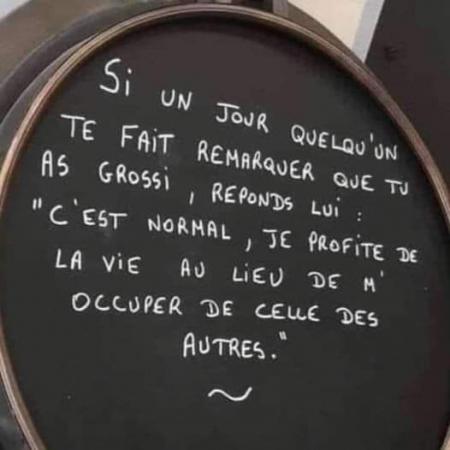 Si UN JOUR QUELQU'UN
TE FAIT REMARQUER QUE TU
AS GROSSI, RÉPONDS LUI :
"C'EST NORMAL, JE PROFITE DE
LA VIE AU LIEU DE M'
OCCUPER DE CELLE DES
AUTRES."
~